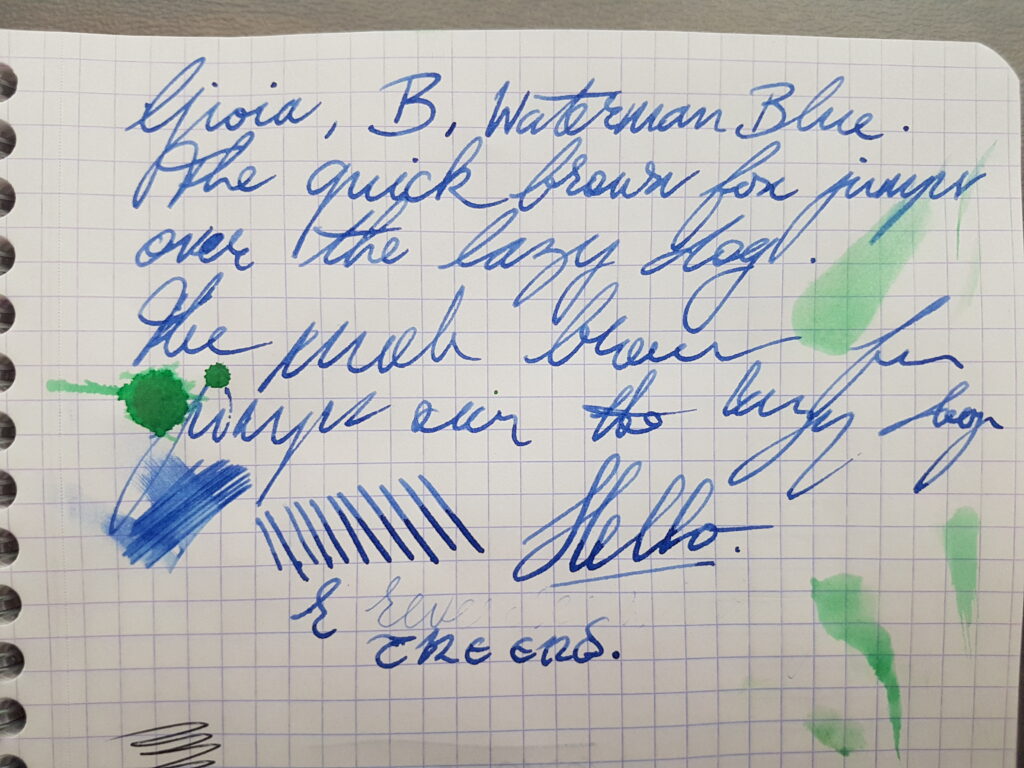 Gioia, B, Waterman Blue.
The quick brown fox jumps
over the lazy dog.
The quick brown fox
jumps over the lazy dog
Hello.
& reve
THE END.